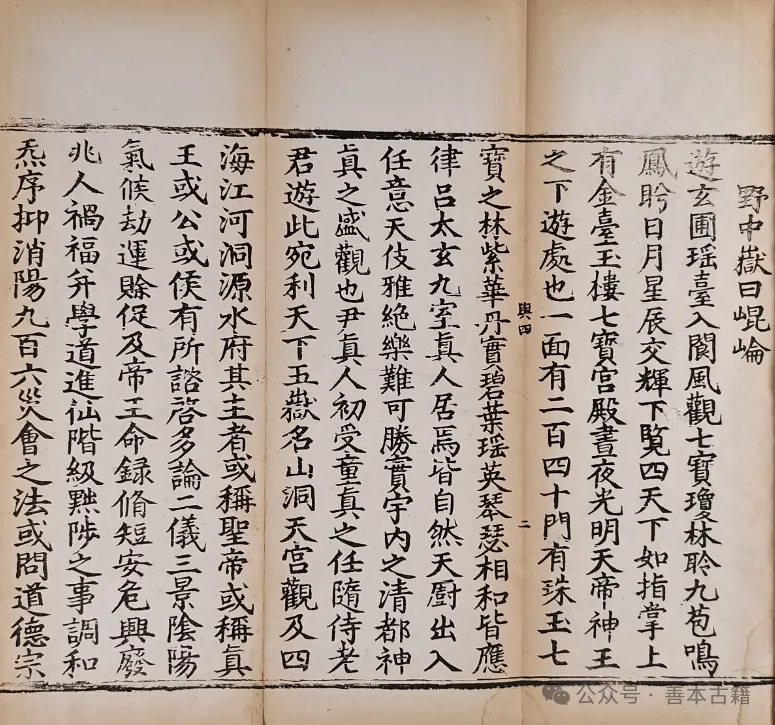 野中嶽曰崐崘
遊玄圃瑶臺入閬風觀七寶瓊林聆九苞鳴
鳳盻日月星辰交輝下覧四天下如指掌上
有金臺玉樓七寶宫殿晝夜光明天帝神王
之下遊處也一面有二百四十門有珠玉七
寶之林紫華丹實碧葉瑶英琴瑟相和皆應
與四
二
律吕太玄九室真人居焉皆自然天厨出入
任意天伎雅絶樂難可勝實宇内之清都神
真之盛觀也尹真人初受童真之任隨侍老
君遊此宛利天下五嶽名山洞天宫觀及四
海江河洞源水府其主者或稱聖帝或稱真
王或公或侯有所諮啓多論二儀三景陰陽
氣候劫運賒促及帝王命録脩短安危興廢
兆人禍福并學道進仙階級黜陟之事調和
炁序抑消陽九百六災會之法或問道德宗
公众号·善本古籍